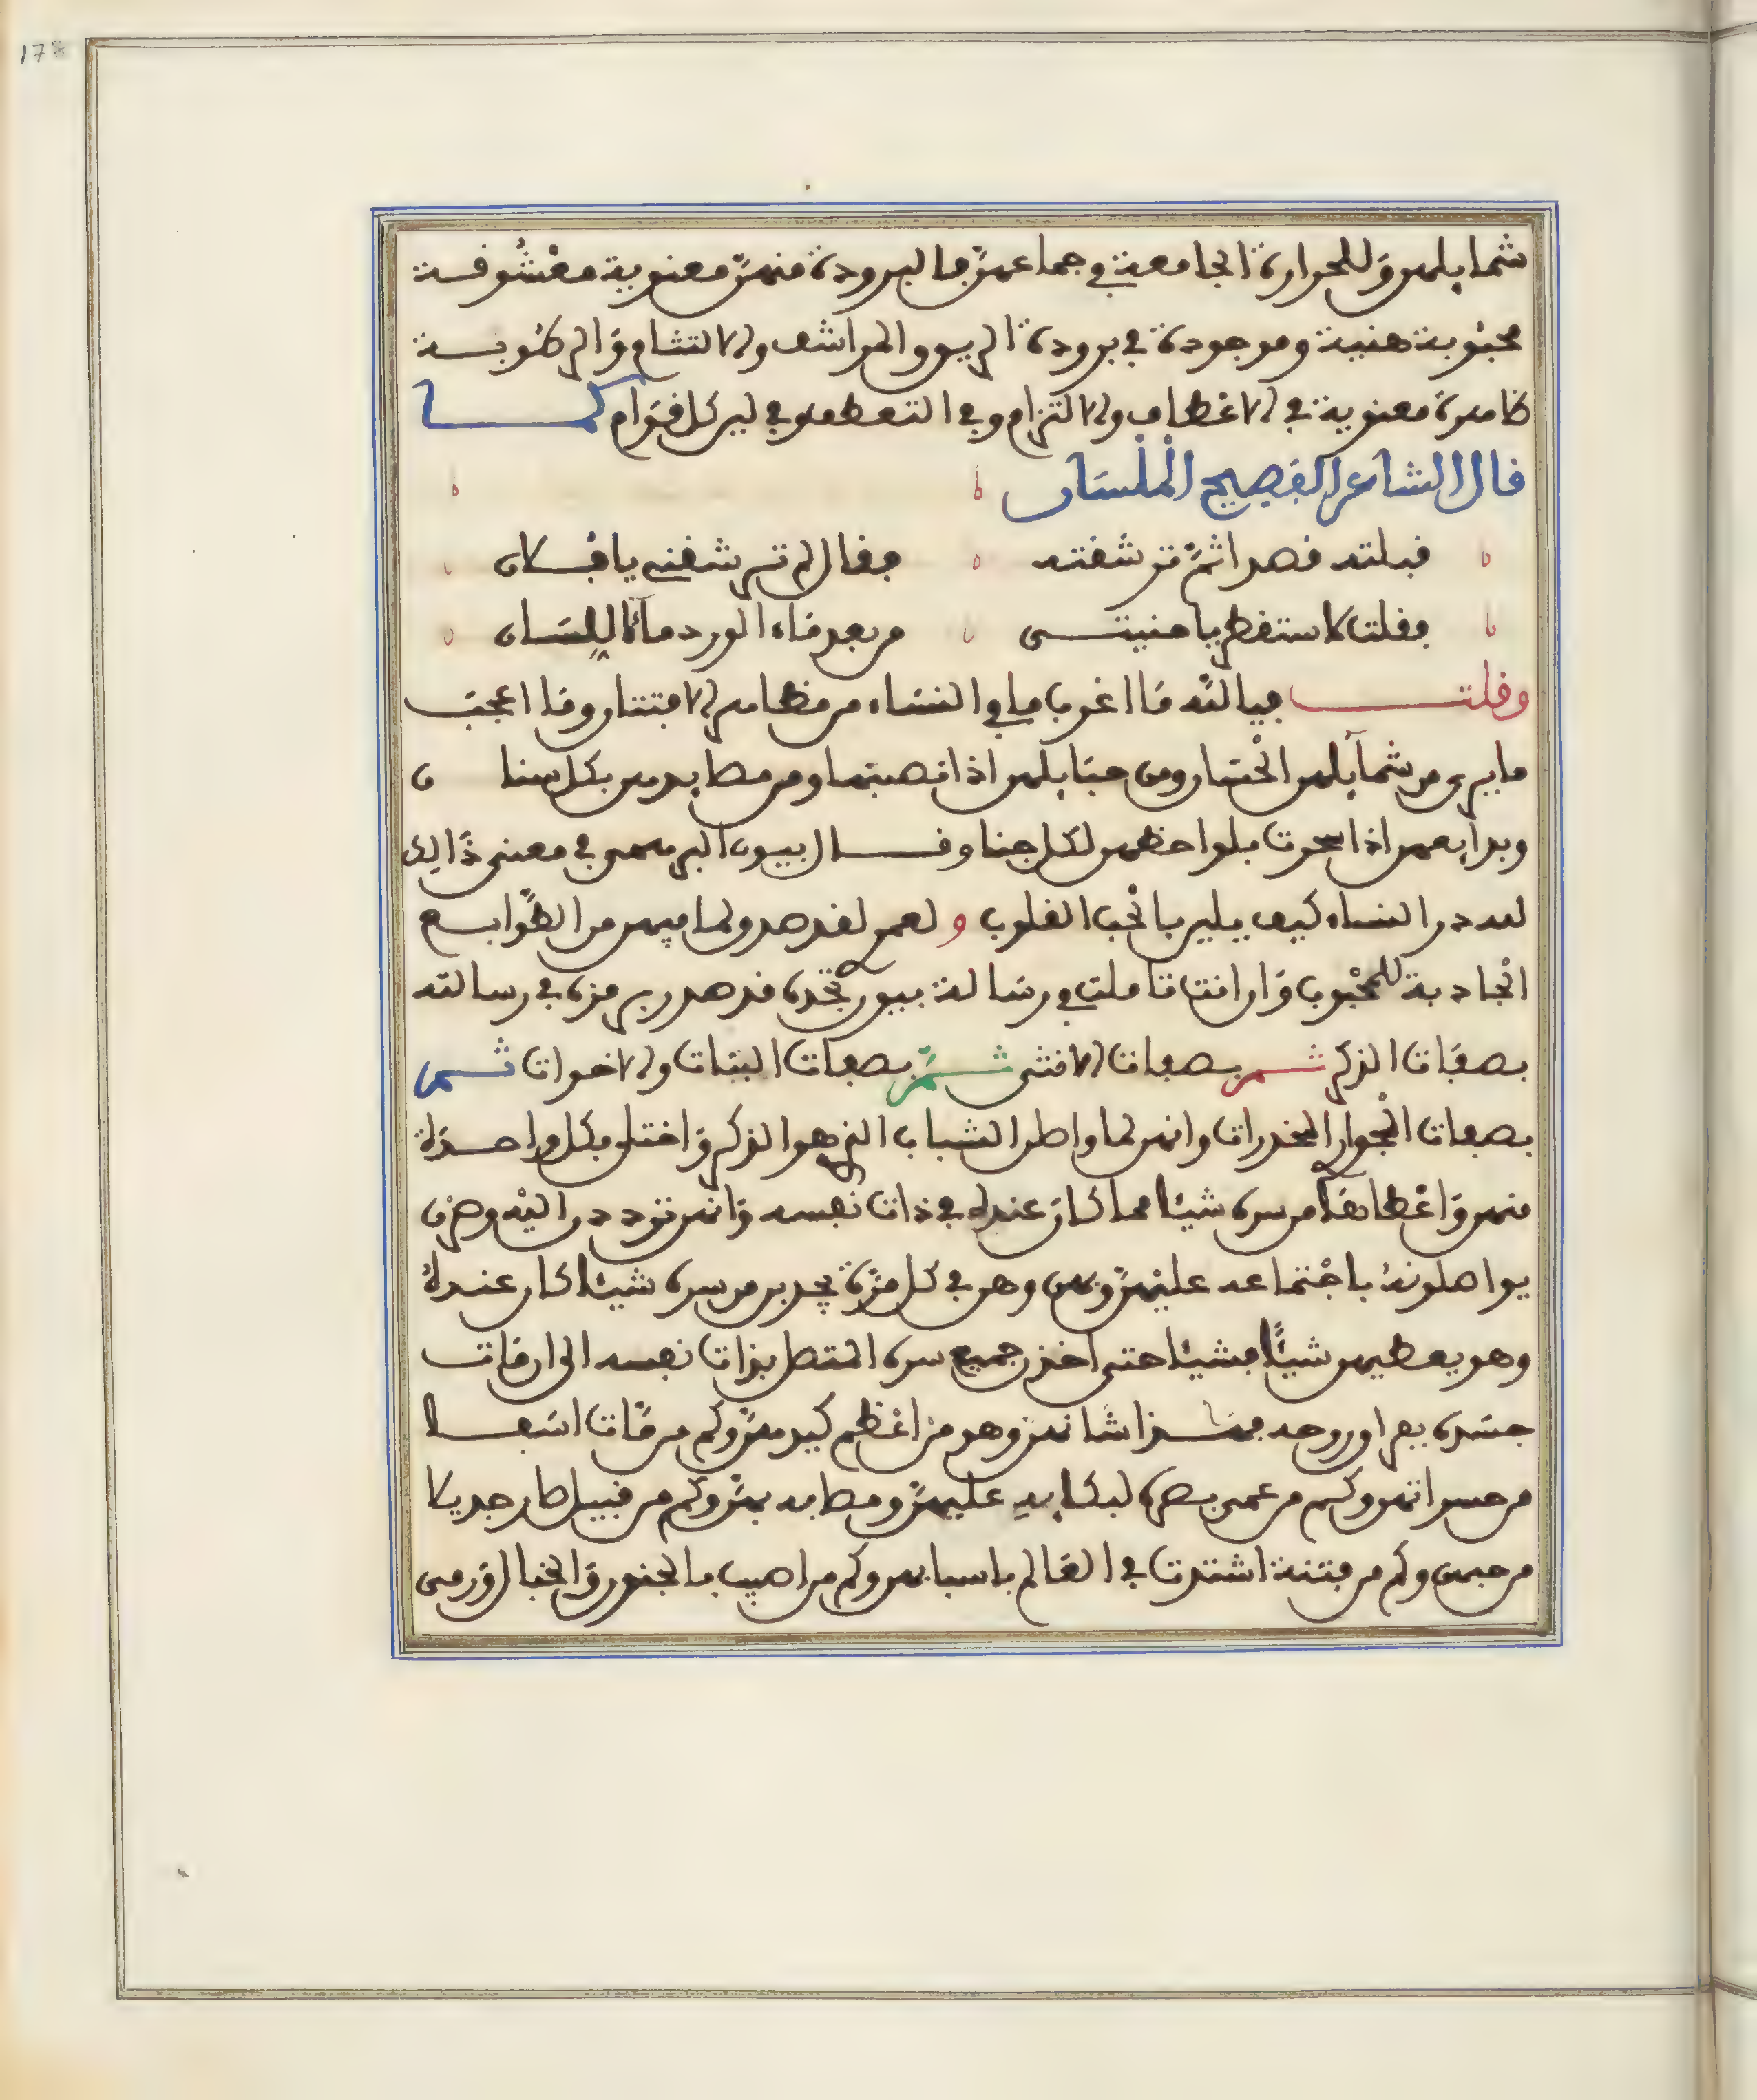 شمايلهن وللحرارة الجامعة في جماعهن فالبرودة منهن معنوية معشوقة
محبوبة هنية وموجودة في برودة الريق والمراشف والالتشام والرطوبة
ظاهرة معنوية في الاعطاف والالتزام وفي التعطف وفي لين كل قوام كما
قال الشاعر الفصيح الملسان
قبلته قصدا ثم ترشفته فقال لم ترشفني يا فلان
فقلت لاستقطر يا منيتي من بعد ماء الورد ماء اللسان
وقلت فيالله ما اغرب ما في النساء من مظاهر الافتتان وما اعجب
ما يرى من شمايلهن الحسان ومن حبايلهن اذا نصبنها ومن مصايدهن بكل سنا ن
وبدايعهن اذا سحرت بلواحظهن لكل جنا وقال بيون البرهمي في معنى ذالك
لله در النساء كيف يلين بالحب القلوب ولعمري لقد صدق لما فيهن من الطوابع
الجاذبة للمحبوب وان انت تاملت في رسالة بيون تجده قد صدر برمزه في رسالته
بصفات الذكر ثم بصفات الانثى ثم بصفات البنات والاخوات ثم
بصفات الجوار المخدرات وانهن لما واصلن الشباب الذي هو الذكر واختلى بكل واحدة
منهن واعطاها من سره شيئا مما كان عنده في ذات نفسه وانهن تودد ن اليه وصرن
يواصلونه باجتماعه عليهن وبهن وهن في كل مرة يجدبن من سره شيئا كان عنده
وهو يعطيهن شيئا فشيئا حتى اخذن جميع سره المتصل بذات نفسه الى ان مات
جسده بفراق روحه فهذا شانهن وهو من اعظم كيدهن وكم من مات اسفا
من حسراتهن وكم من عمي بصره لبكايه عليهن ومصابه بهن وكم من قبيل صار جديلا
من حبهن وكم من فتنة اشتدت في العالم باسبابهن وكم من اصيب بالجنون والخبال ورمى
178